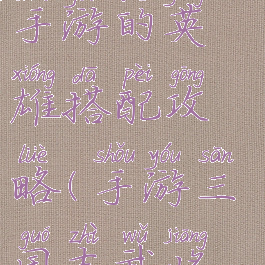 手游的英
xióng dā pèi gōng
雄搭配攻
lüè shǒu yóu sān
略(手游三
guó zhī wǔ jiàng